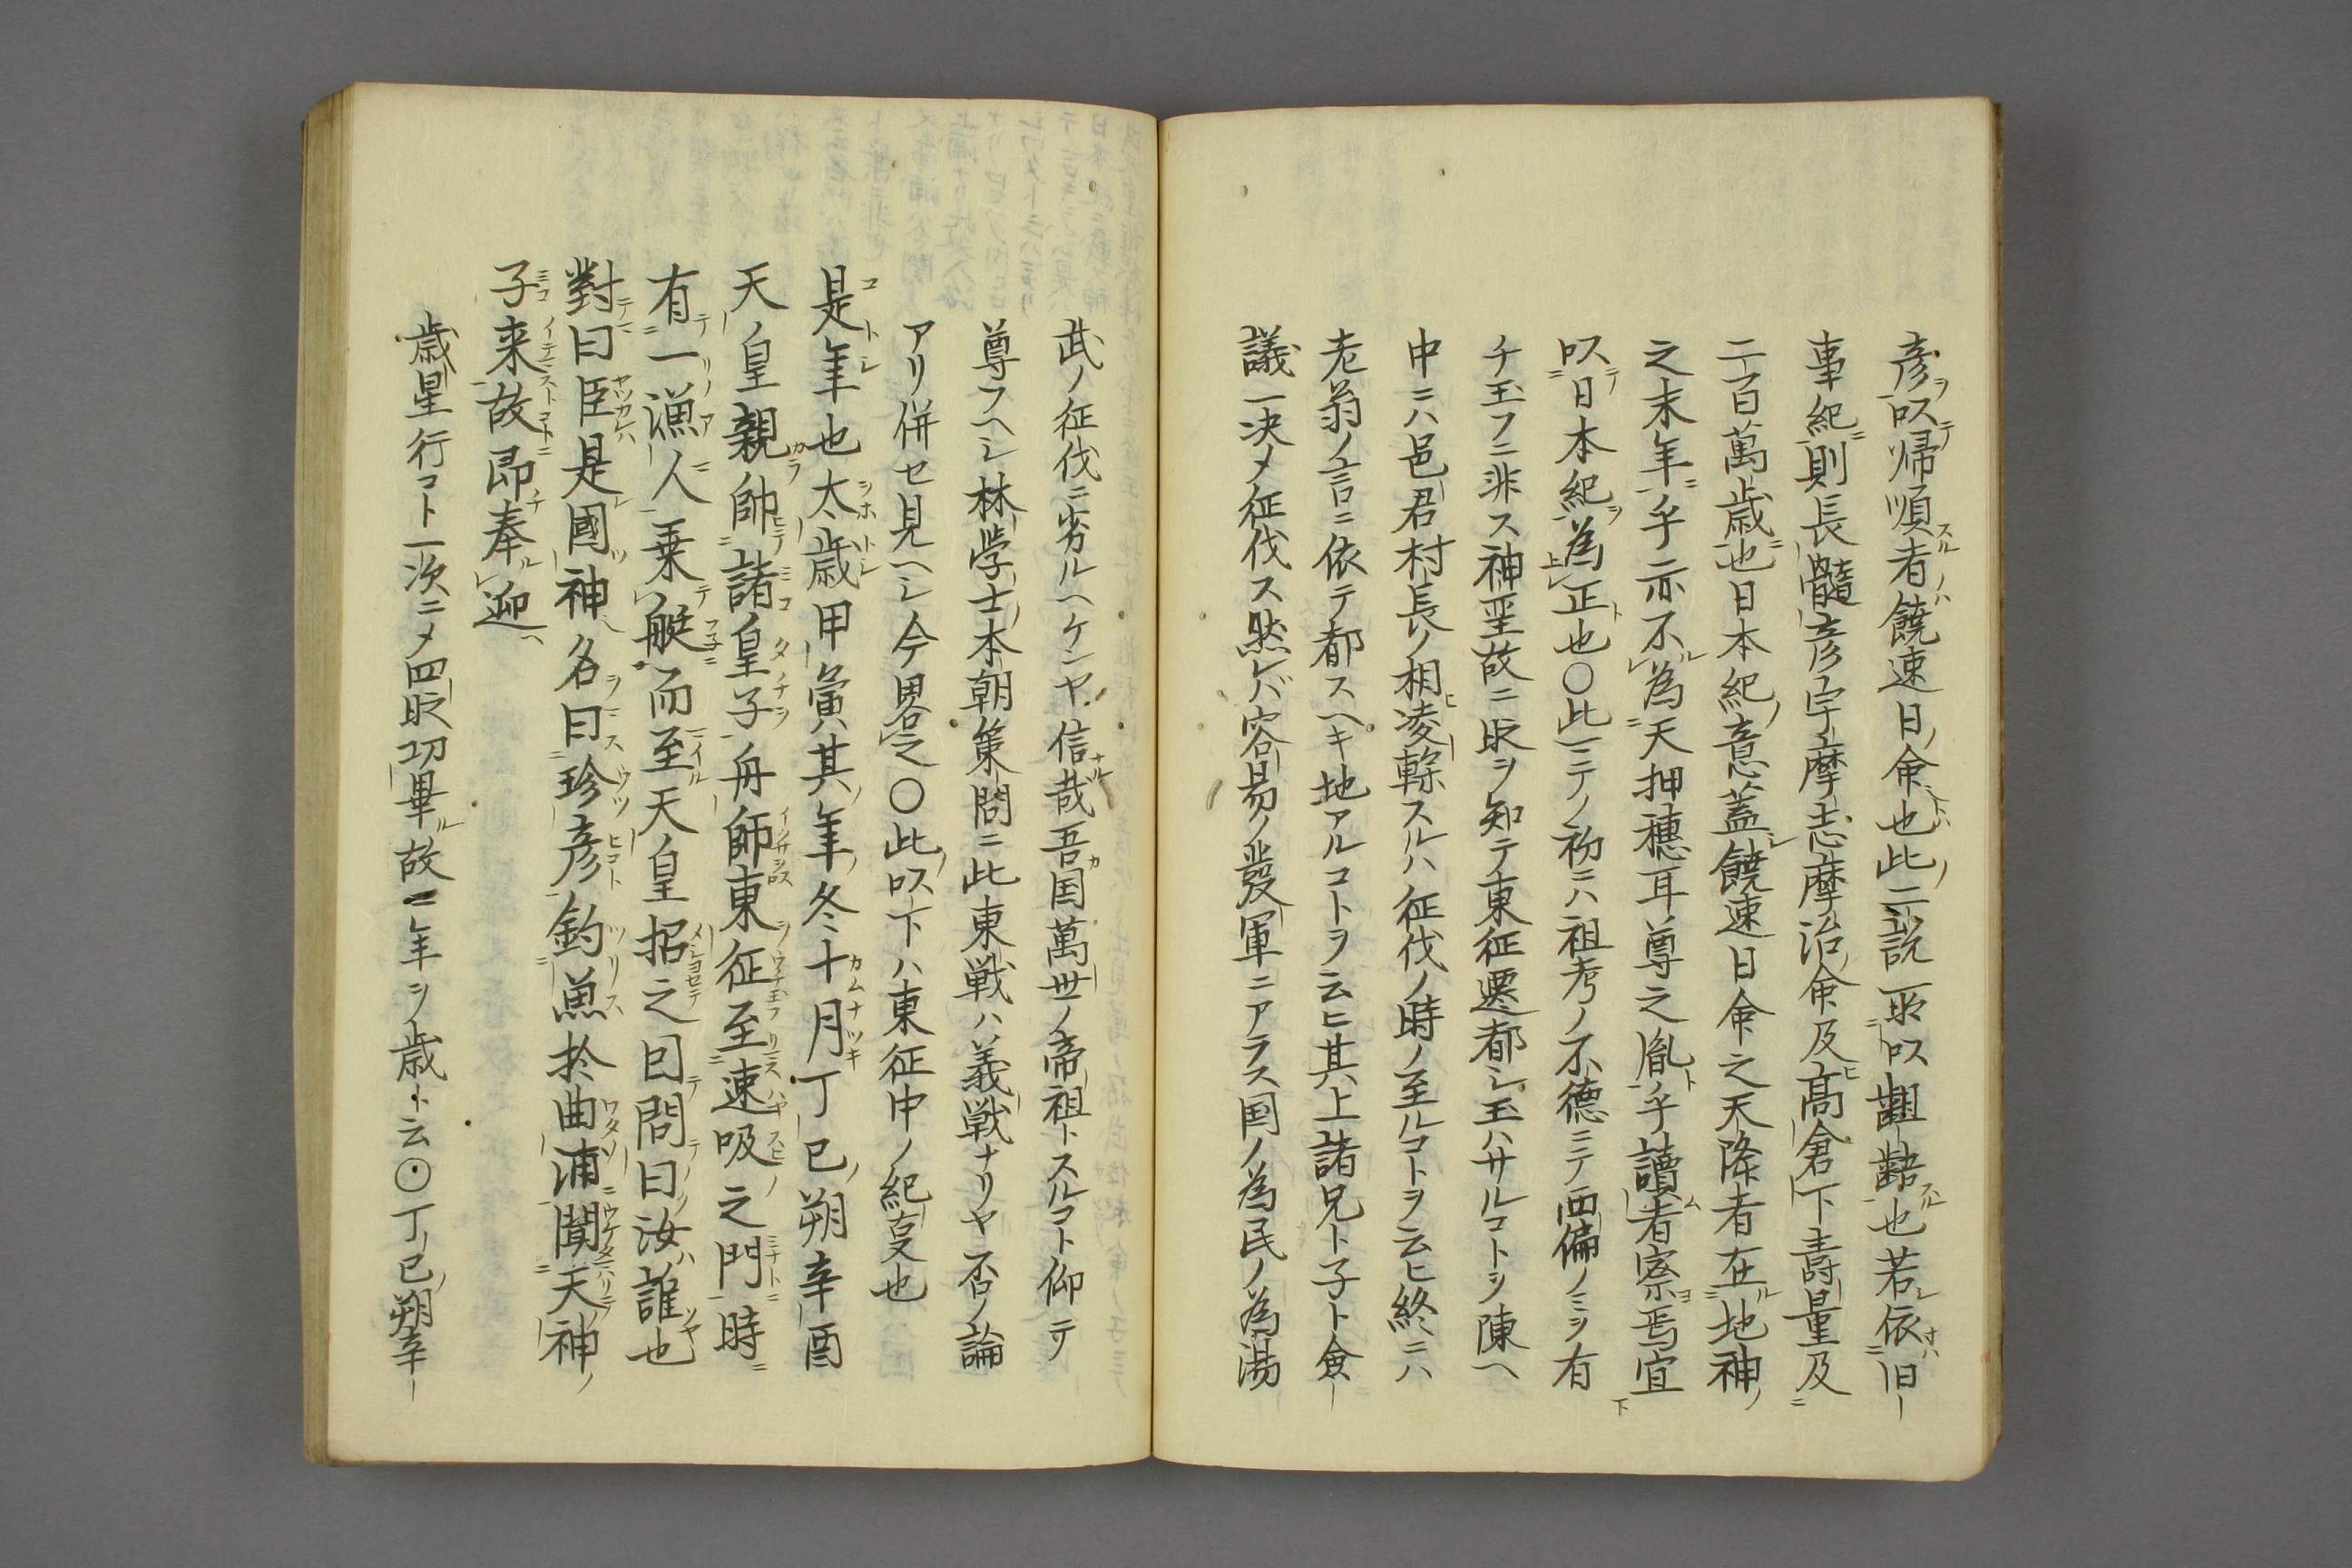 彦以帰順者饒速日命也此二説所以齟齬也若依旧
事紀則長髓彦宇摩志摩治命及高倉下壽量及
二百萬歳也日本紀意蓋饒速日命之天降者在地神
之末年乎亦不為天押穗耳尊之胤乎讀者察焉宜
以日本紀為正也〇此ニテノ初ニハ祖考ノ不徳ニテ西偏ノミヲ有
チ玉フニ非ス神聖故ニ此ヲ知テ東征遷都シ玉ハサルコトヲ陳ヘ
中ニハ邑君村長ノ相凌轢スルハ征伐ノ時ノ至ルコトヲ云ヒ終ニハ
老翁ノ言ニ依テ都スヘキ地アルコトヲ云ヒ其上諸兄ト子ト會
議一决メ征伐ス然レバ容易ノ發軍ニアラス国ノ為民ノ為湯
武ノ征伐ニ劣ルヘケンヤ信哉吾国萬世ノ帝祖トスルコト仰テ
尊フヘシ林学士本朝策問ニ此東戦ハ義戦ナリヤ否ノ論
アリ併セ見ヘシ今畧之〇此以下ハ東征中ノ紀事也
是年也太歳甲寅其年冬十月丁巳朔辛酉
天皇親帥諸皇子舟師東征至速吸之門時
有一漁人乗艇而至天皇招之因問曰汝誰也
對曰臣是國神名曰珍彦釣魚於曲浦聞天神
子来故即奉迎
歳星行コト一次ニメ四時功畢故一年ヲ歳ト云〇丁巳朔辛